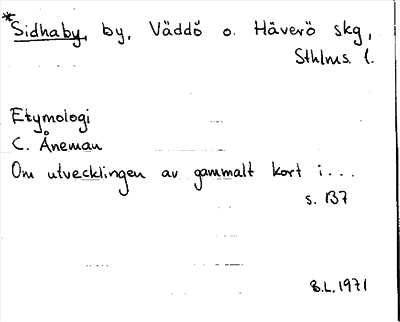 *Sidhaby, by, Väddö o. Häverö skg,
Sthlms. l.
Etymologi
C. Åneman
Om utvecklingen av gammalt kort i...
s. 137
B.L. 1971